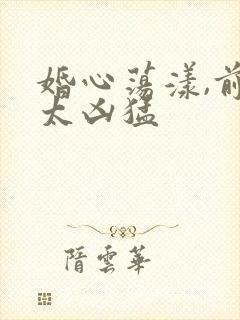 婚心荡漾,前
太凶猛
隋雲華